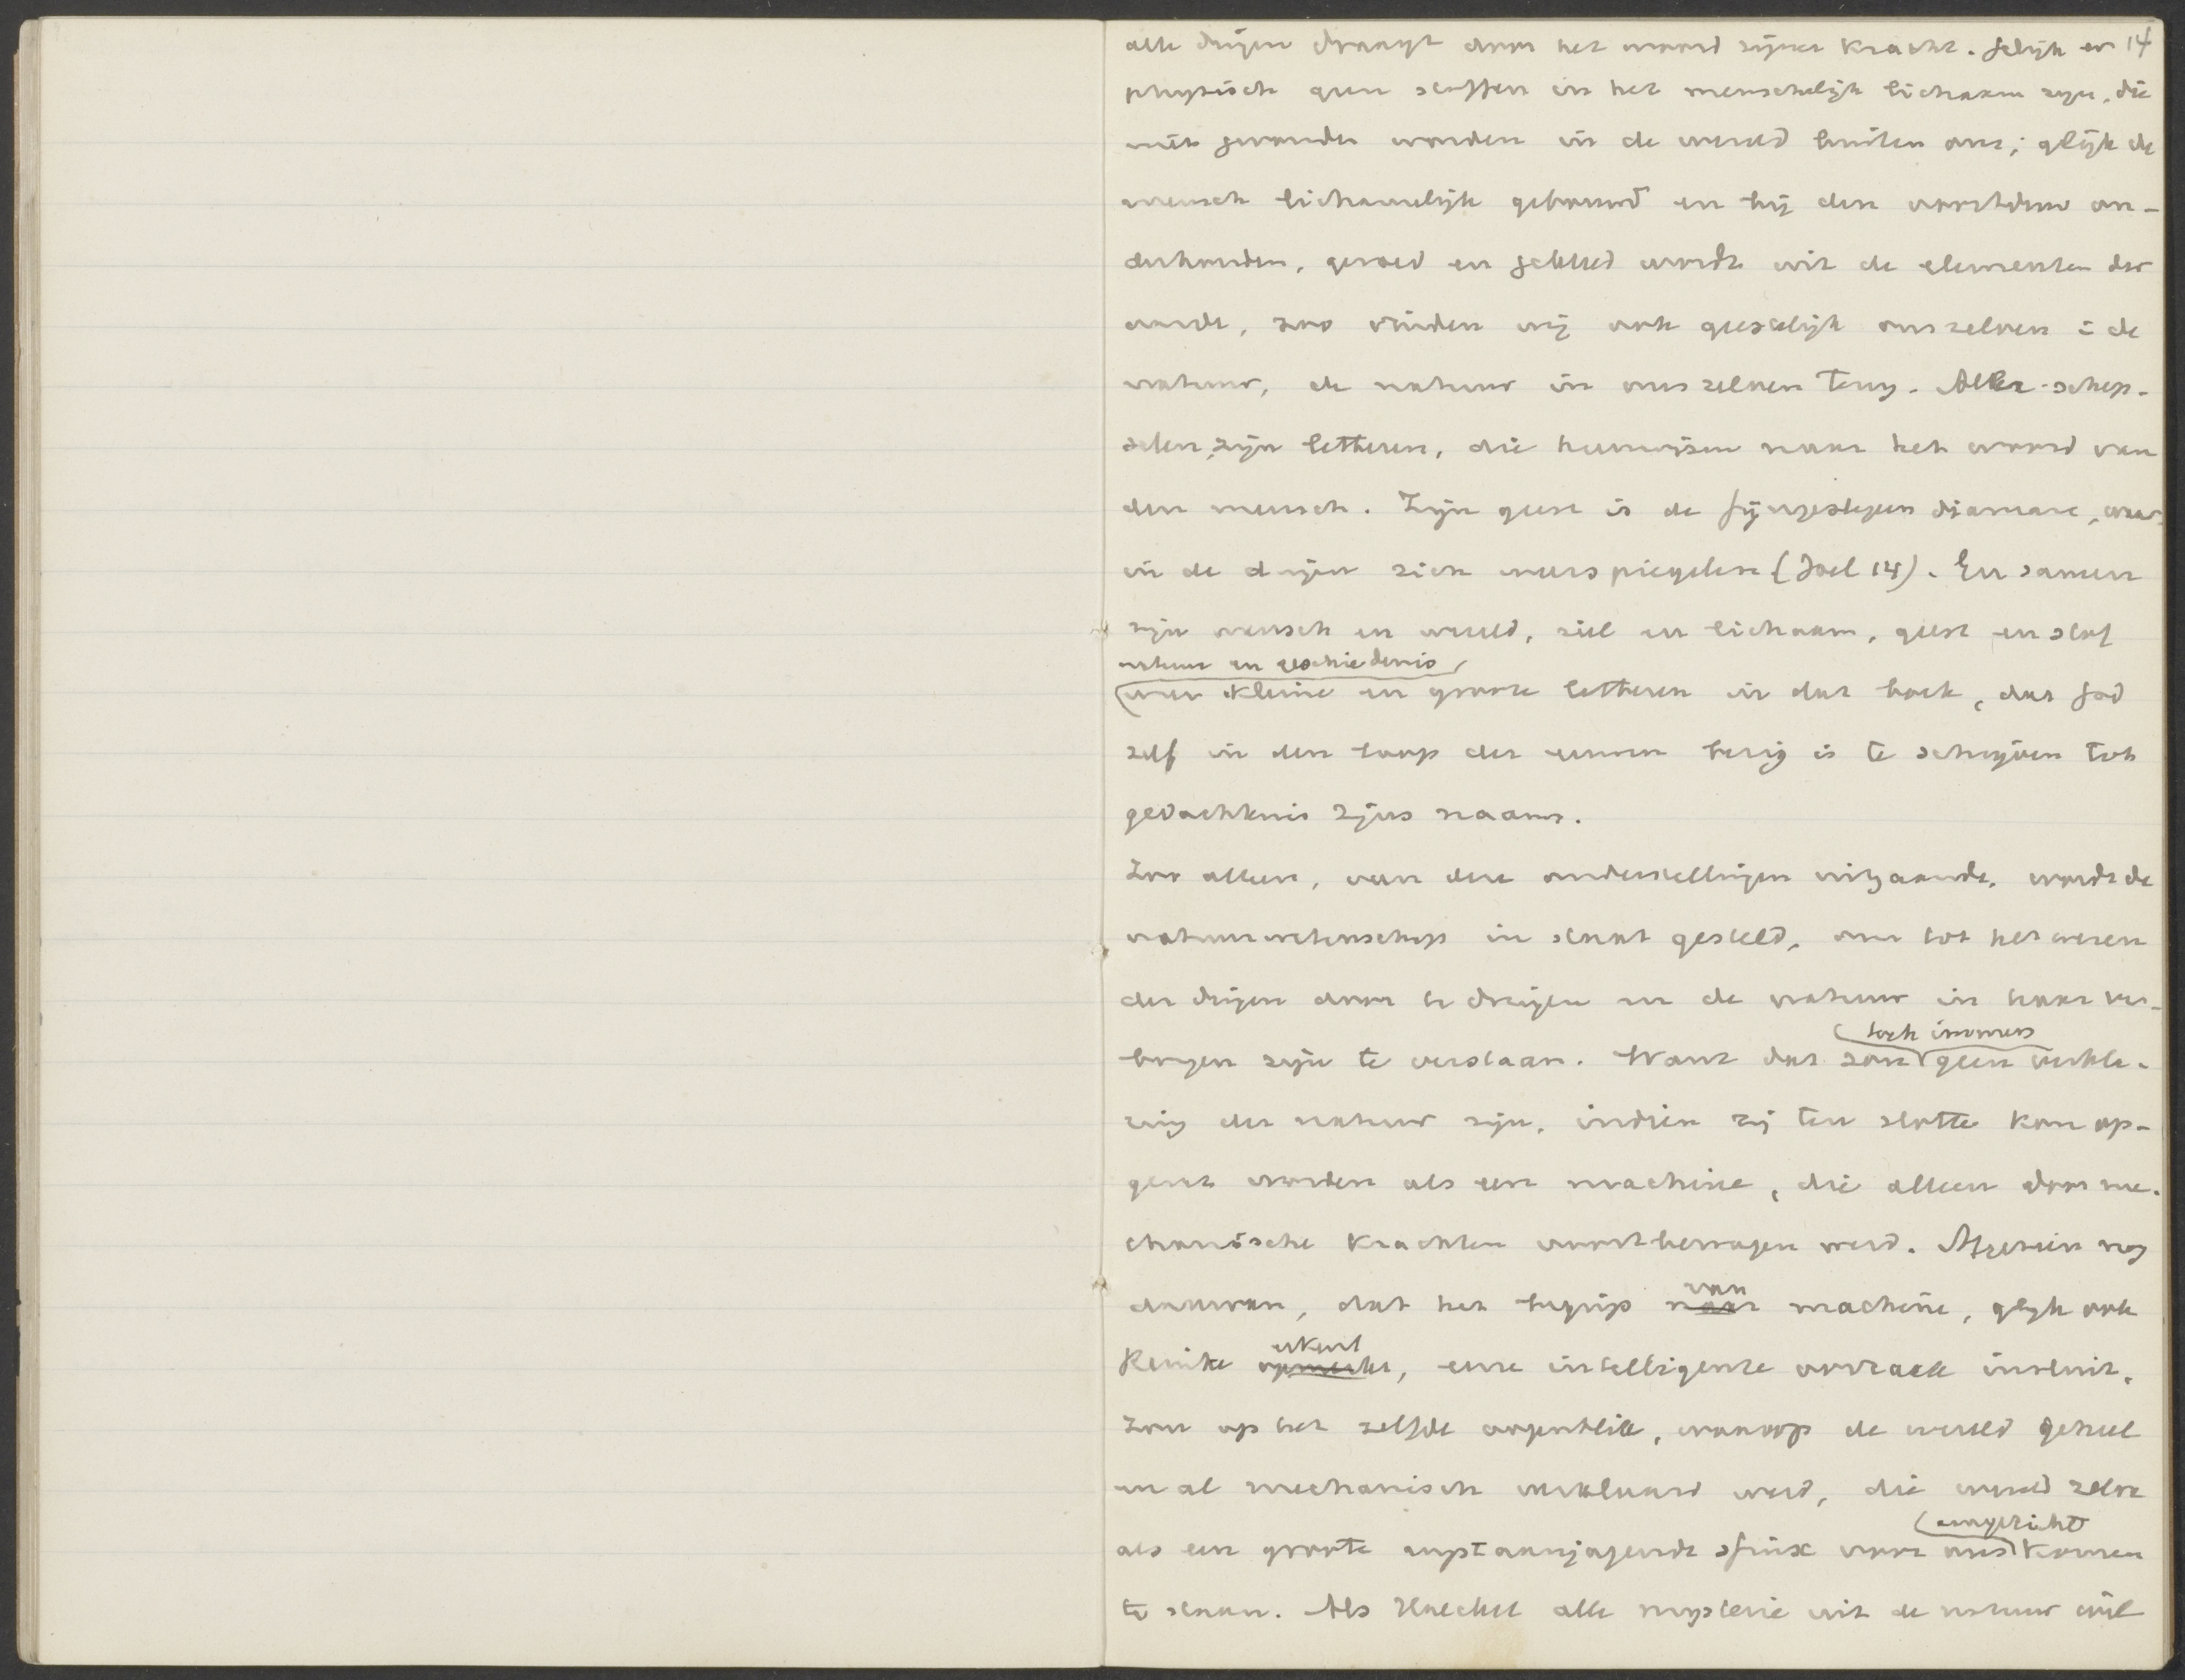 alle dingen draagt door het woord zijner kracht. Gelijk er 14
physisch geen stoffen in het menschelijk lichaam zijn, die
niet gevonden worden in de wereld buiten ons; gelijk de
mensch lichamelijk gebouwd en bij den voortduur on-
derhouden, gevoed en gekleed wordt uit de elementen der
aarde, zoo vinden wij ook geestelijk onszelven i de
natuur, de natuur in ons zelven terug. Alle schep-
selen zijn letteren, die heenwijzen naar het woord van
den mensch. Zijn geest is de fijngeslepen diamant, waar-
in de dingen zich weerspiegelen (Joël 14). En samen
zijn mensch en wereld, ziel en lichaam, geest en stof
natuur en geschiedenis
weer kleine en groote letteren in dat boek, dat God
zelf in den loop der eeuwen bezig is te schrijven tot
gedachtenis zijns naams.
Zoo alleen, van die onderstellingen uitgaande, wordt de
natuurwetenschap in staat gesteld, om tot het wezen
der dingen door te dringen en de natuur in haar ver-
toch immers
borgen zijn te verstaan. Want dat zou geen verkla-
ring der natuur zijn, indien zij ten slotte kon op-
gevat worden als een machine, die alleen door me-
chanische krachten voortbewogen werd. Afgezien nog
van
daarvan, dat het begrip naar machine, gelijk ook
erkent
Reinke opmerkt, eene intelligente oorzaak insluit,
Zou op het zelfde oogenblik, waarop de wereld geheel
en al mechanisch verklaard werd, die wereld zelve
aangezicht
als een groote angstaanjagende sfinx voor ons komen
te staan. Als Haeckel alle mysterie uit de natuur wil